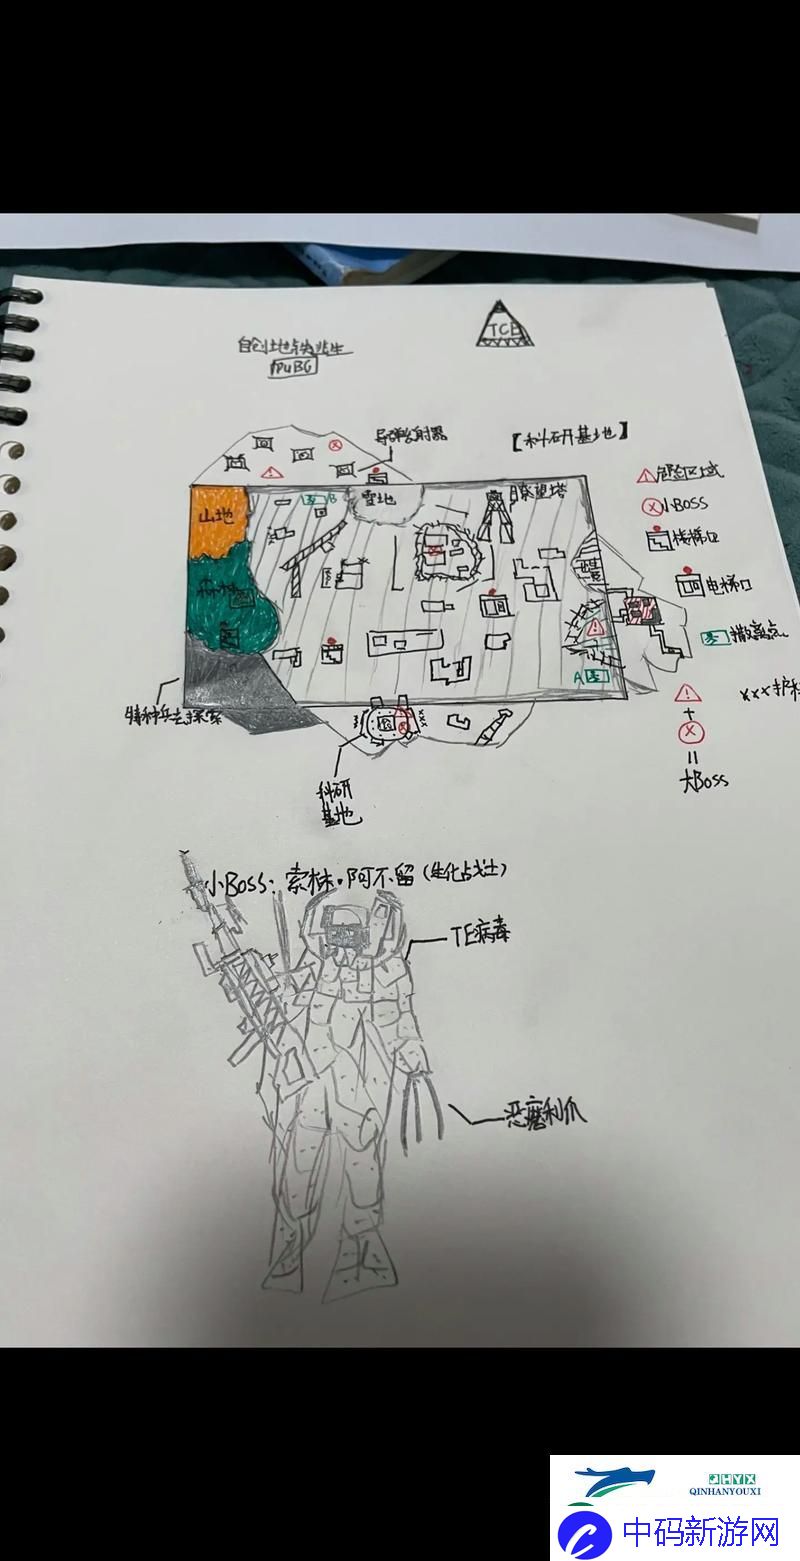 自创地铁逃生
PUBG
TCE
导弹发射器
【科研基地】
危险区域
小BOSS
楼梯口
电梯口
撤离点
大Boss
山地
雪地
瞭望塔
森林
B
A
特种兵去探索
科研
基地
小BOSS：索林·阿不留（生化战士）
TE病毒
恶魔利爪
QHYX
QINHANYOUXI
中码新游网